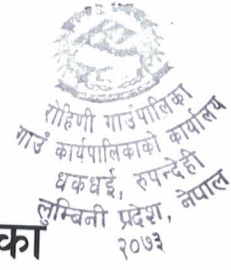 रोहिणी गाउँपालिका
गाउँ कार्यपालिकाको कार्यालय
धकधई, रुपन्देही
लुम्बिनी प्रदेश, नेपाल
२०७३
का